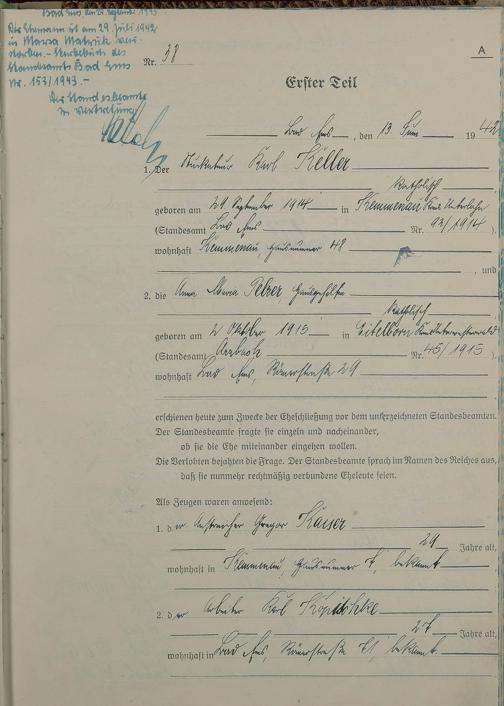 Bad Ems den 29. September 1943
Der Ehemann ist am 29. Juli 1942
in
storben. – Sterbebuch des
Standesamts Bad Ems
Nr. 153/1943. –
Der Standesbeamte
in Vertretung
A
Nr. 38
Erster Teil
Bad Ems, den 13. Juni 1942
1. Der Stuckateur Karl Keller
katholisch
geboren am 29. September 1914 in Kemmenau Kreis Unterlahn
(Standesamt Bad Ems Nr. 93/1914).
wohnhaft Kemmenau, Hausnummer 48
, und
2. die Anna Maria Pelzer Hausgehilfin
katholisch
geboren am 2. Oktober 1915 in Eitelborn Kreis Unterwesterwald
(Standesamt Arzbach Nr. 45/1915).
wohnhaft Bad Ems, Römerstraße 29
erschienen heute zum Zwecke der Eheschließung vor dem unterzeichneten Standesbeamten.
Der Standesbeamte fragte sie einzeln und nacheinander,
ob sie die Ehe miteinander eingehen wollen.
Die Verlobten bejahten die Frage. Der Standesbeamte sprach im Namen des Reiches aus,
daß sie nunmehr rechtmäßig verbundene Eheleute seien.
Als Zeugen waren anwesend:
1. der Anstreicher Gregor Kaiser
29 Jahre alt,
wohnhaft in Kemmenau, Hausnummer 7, bekannt
2. der Arbeiter Karl
27 Jahre alt,
wohnhaft in Bad Ems, Römerstraße 71, bekannt.